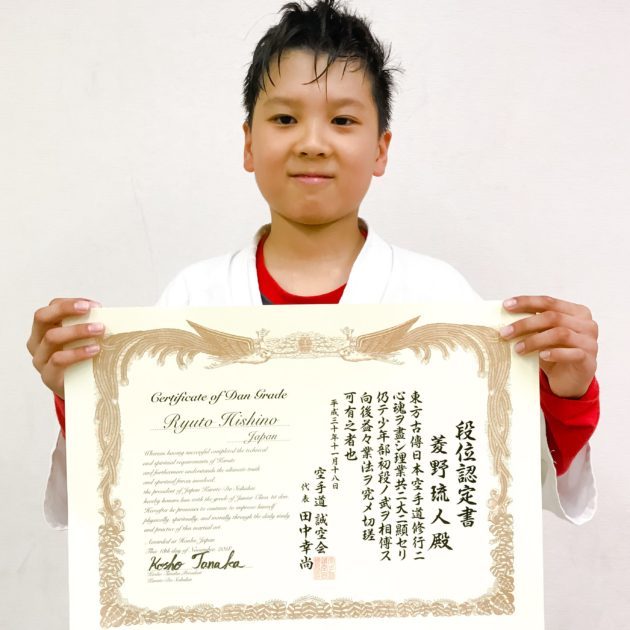 Certificate of Dan Grade
Ryuto Hishino
Japan
Whereas having successful completed the technical
and spiritual requirements of Karate
and furthermore understands the ultimate truth
and spiritual forces involved,
the president of Japan Karate-Do Seikukai
hereby honors him with the grade of Junior Class 1st dan
Hereafter he promises to continue to improve himself
physically, spiritually, and morally through the daily study
and practice of this martial art.
Awarded at Osaka Japan
This 18th day of November
Kosho Tanaka
段位認定書
菱野琉人殿
東方古傳日本空手道修行ニ
心魂ヲ盡シ理業共ニ大ニ顕セリ
仍テ少年部初段ノ武ヲ相傳ス
向後益々業法ヲ究メ切瑳
可有之者也
平成三十年十一月十八日
空手道 誠空会
代表 田中幸尚